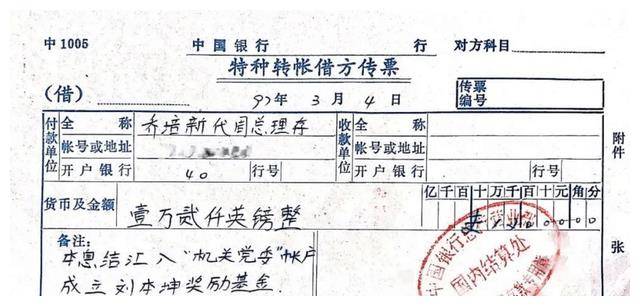 中1005 中国银行 行 对方科目
特种转帐借方传票
(借) 97年3月4日 传票编号
付款单位 全称 乔培新代周总理存 收款单位 全称
帐号或地址 帐号或地址
开户银行 40 行号 开户银行 行号
附件
货币及金额 壹万贰仟英镑整 亿千百十万千百十元角分
张
备注:
本息结汇入“机关党委”帐户
成立刘本坤奖励基金.
中国银行总
国内结算处